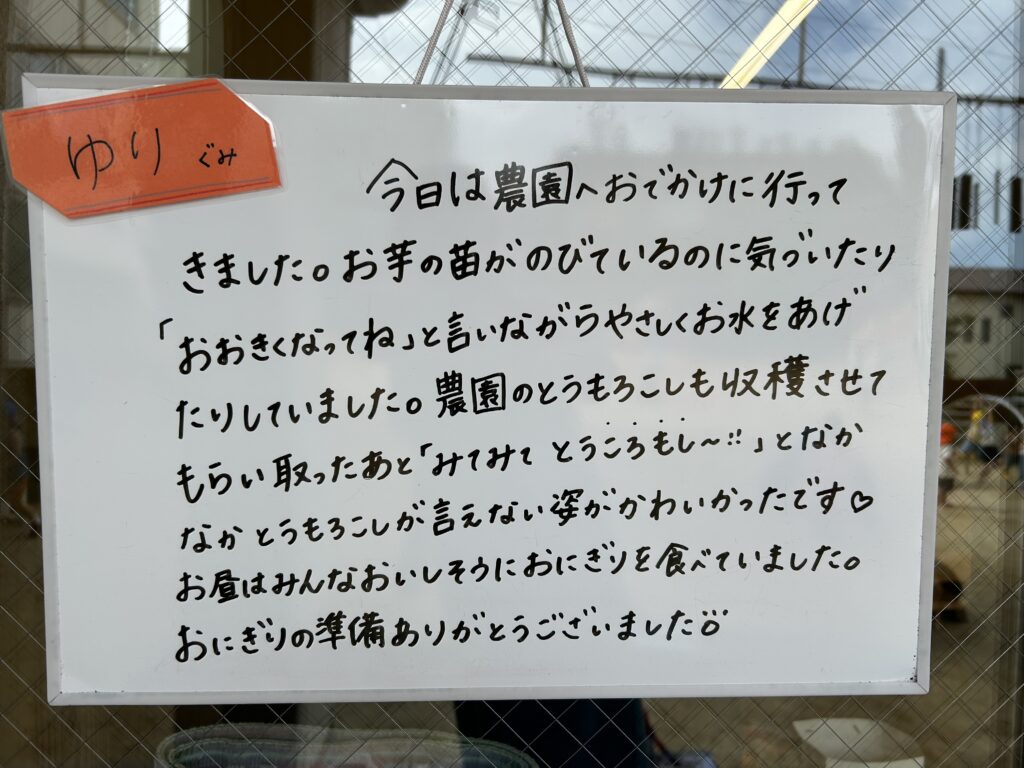 ゆり ぐみ
今日は農園へおでかけに行って
きました。お芋の苗がのびているのに気づいたり
「おおきくなってね」と言いながらやさしくお水をあげ
たりしていました。農園のとうもろこしも収穫させて
もらい取ったあと「みてみて とうころもし〜!!」となか
なかとうもろこしが言えない姿がかわいかったです♡
お昼はみんなおいしそうにおにぎりを食べていました。
おにぎりの準備ありがとうございました